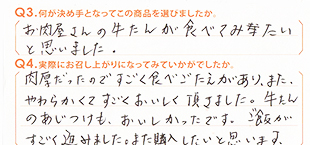 Q3.何が決め手となってこの商品を選びましたか。
お肉屋さんの牛たんが食べてみたい
と思いました。
Q4.実際にお召し上がりになってみていかがでしたか。
肉厚だったのですごく食べごたえがあり、また、
やわらかくてすごくおいしく頂きました。牛たん
のあじつけも、おいしかったです。ご飯が
すごく進みました。また購入したいと思います。